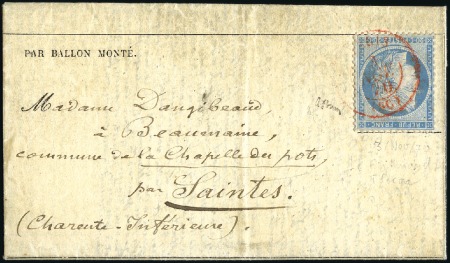 PAR BALLON MONTÉ.
Madame Dangibeaud,
à Beauvenaine,
commune de la Chapelle des pots,
par Saintes,
(Charente-Inférieure).
REPUB FRANC